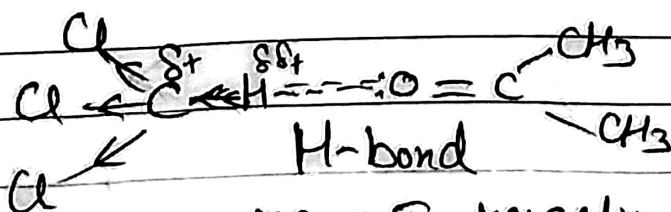 Cl δ+ δδ+ CH3
Cl C H O = C
Cl H-bond CH3